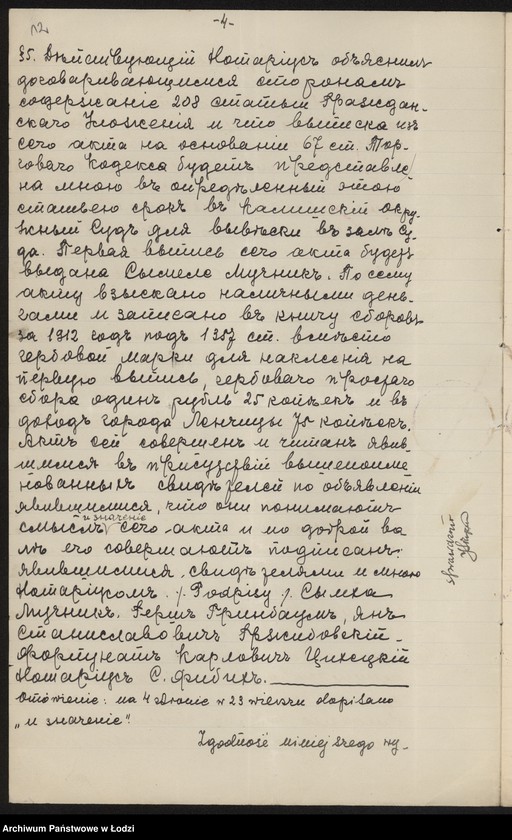 12
-4-
§5. Дѣйствующій Нотаріусъ объяснилъ
договаривающимся сторонамъ
содержаніе 208 статьи Граждан-
скаго Уложенія и что выписка изъ
сего акта на основаніи 67 ст. Тор-
говаго Кодекса будетъ представле
на мною въ опредѣленный этою
статьею срокъ въ Калишскій окру-
жный Судъ для вывѣски въ залѣ Су-
да. Первая выпись сего акта будетъ
выдана Сымсе Мучникъ. По сему
акту взыскано наличными день-
гами и записано въ книгу сборовъ
за 1912 годъ подъ 1357 ст. вмѣсто
гербовой марки для наклеенія на
первую выпись, гербоваго простаго
сбора одинъ рубль 25 копѣекъ и въ
доходъ города Ленчицы 75 копѣекъ.
Актъ сей совершенъ и читанъ явив-
шимся въ присутствіи вышепоиме
нованныхъ свидѣтелей по объявленіи
явившимися, что они понимаютъ
смыслъ и значеніе сего акта и по доброй во
лѣ его совершаютъ подписанъ
явившимися, свидѣтелями и мною
Нотаріусомъ. /. Podpisy /. Сымха
Мучникъ. Гершъ Гринбаумъ, Янъ
Станиславовичъ Гржибовскій-
Фортунатъ Карловичъ Цихецкій
Нотаріусъ С. Фибихъ.
Omówienie: na 4 stronie w 23 wierszu dopisano
„и значеніе".
Zgodność niniejszego wy-
sprawdził
Archiwum Państwowe w Łodzi